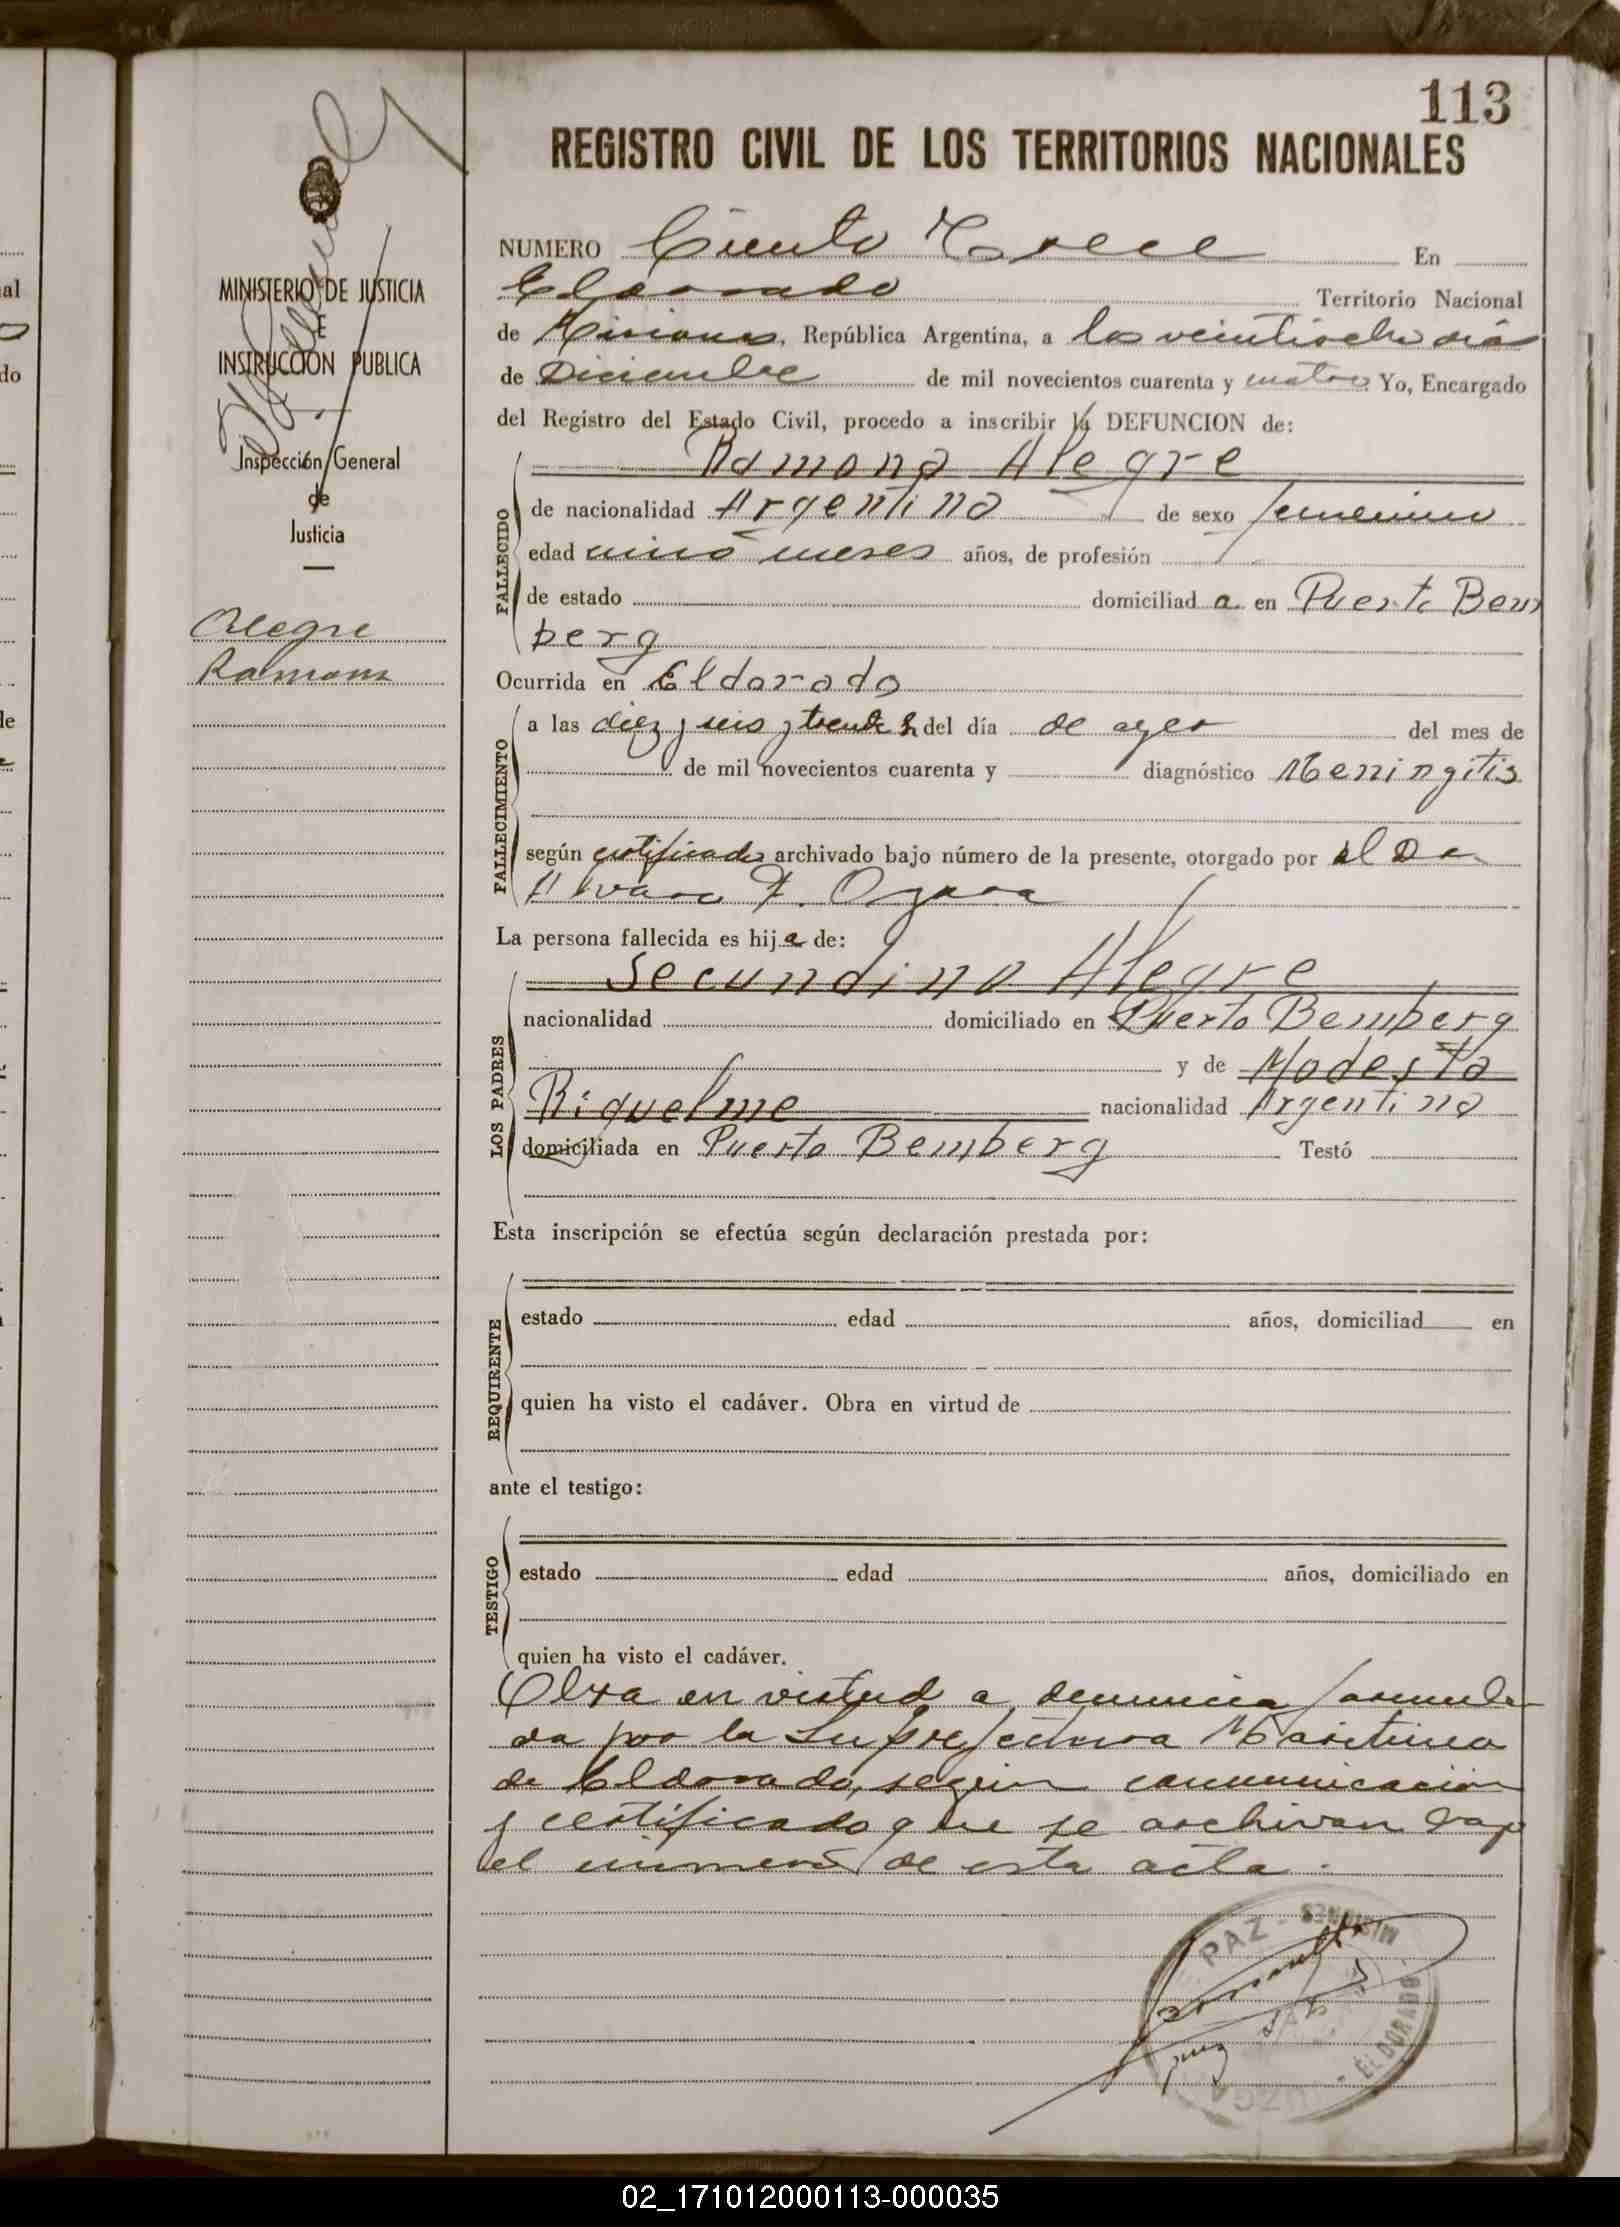 113
REGISTRO CIVIL DE LOS TERRITORIOS NACIONALES
MINISTERIO DE JUSTICIA
E
INSTRUCCIÓN PUBLICA
Inspección General
de
Justicia
Alegre
Ramona
NUMERO Ciento Trece En
Eldorado Territorio Nacional
de Misiones, República Argentina, a los veintiocho dias
de Diciembre de mil novecientos cuarenta y cuatro Yo, Encargado
del Registro del Estado Civil, procedo a inscribir la DEFUNCION de:
Ramona Alegre
FALLECIDO
de nacionalidad Argentina de sexo femenino
edad cinco meses años, de profesión
de estado domiciliad a en Puerto Bem
berg
Ocurrida en Eldorado
FALLECIMIENTO
a las diez y seis y treinta h del día de ayer del mes de
de mil novecientos cuarenta y diagnóstico Meningitis
según certificado archivado bajo número de la presente, otorgado por el Dr
Alvaro F.
La persona fallecida es hij a de:
LOS PADRES
Secundino Alegre
nacionalidad domiciliado en Puerto Bemberg
y de Modesta
Riquelme nacionalidad Argentina
domiciliada en Puerto Bemberg Testó
Esta inscripción se efectúa según declaración prestada por:
REQUIRENTE
estado edad años, domiciliad en
quien ha visto el cadáver. Obra en virtud de
ante el testigo:
TESTIGO
estado edad años, domiciliado en
quien ha visto el cadáver.
Obra en virtud a denuncia formula
da por la Subprefectura Maritima
de Eldorado, segun comunicacion
y certificado que se archivan bajo
el numero de esta acta.
PAZ - MISIONES
- ELDORADO -
02_171012000113-000035